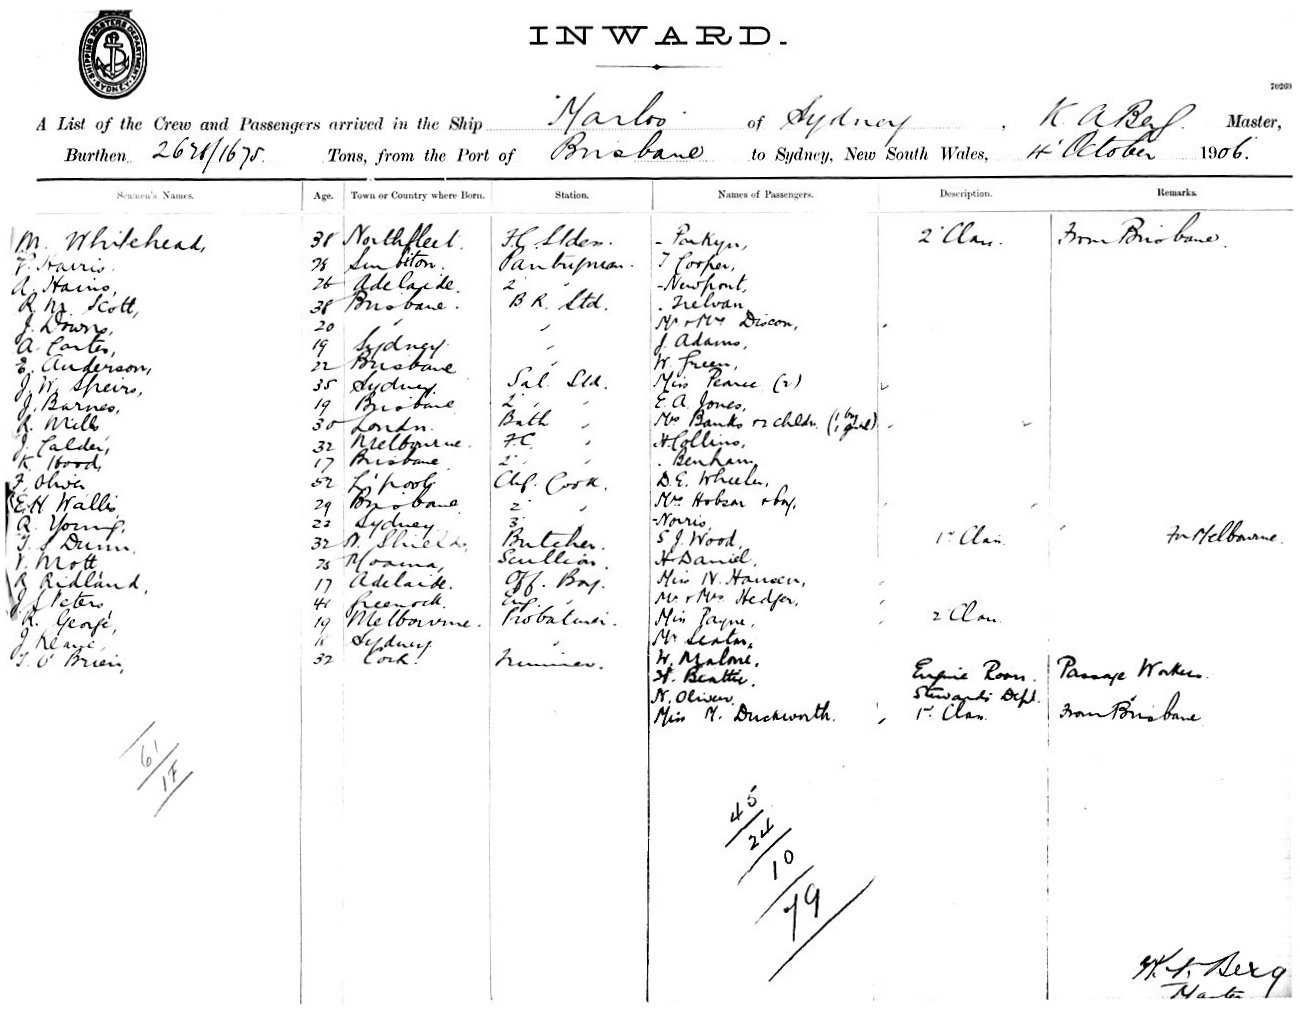 SHIPPING MASTERS DEPARTMENT SYDNEY
INWARD.
70269
A List of the Crew and Passengers arrived in the Ship Marloo of Sydney, K A Berg. Master,
Burthen 2628/1675 Tons, from the Port of Brisbane to Sydney, New South Wales, 4 October 1906.
Seamen's Names. Age. Town or Country where Born. Station. Names of Passengers. Description. Remarks.
M. Whitehead, 38 Northfleet. F.C. Stdess. - Parkyn, 2 Class. From Brisbane.
Harris. 28 Surbiton. Pantryman. T Cooper,
A. Hains, 26 Adelaide. 2 " - Newport,
R. M. Scott, 38 Brisbane. B.R. Std. . Trelvan
J. Downs, 20 " " Mr & Mrs Discon,
A. Carter, 19 Sydney " J. Adams,
E. Anderson, 22 Brisbane " W. Green,
J. W. Speirs, 35 Sydney Sal. Std. Miss Pearce (2)
J. Barnes, 19 Brisbane 2 " " E. A. Jones,
R. Mills 30 London. Bath " Mrs Banks & 2 childn. (1 boy 1 girl)
J. Calder, 32 Melbourne. F.C. " H. Collins,
K. Hood, 17 Brisbane 2 " . Benham
F. Oliver 52 L'pool Chf. Cook. D. E. Wheeler,
E. H. Wallis 29 Brisbane 2 " Mrs Hobson & boy,
R. Young, 22 Sydney 3 " - Norris,
T. S Dunn. 32 N. Shields, Butcher. S J. Wood, 1st Class. For Melbourne.
V. Mott, 25 Moama, Scullion. H Daniel,
R Ridland, 17 Adelaide. Off. Boy. Miss N. Hansen,
J. S Peters, 41 Greenock. Eng. " Mr & Mrs Hedger,
R. George, 19 Melbourne. Miss Payne, 2 Class.
J. Keane, 18 Sydney " Mr Seaton,
T. O'Brien, 32 Cork. Trimmer. W. Malone,
W. Beattie. Engine Room. Passage Workers.
N. Oliver. Stewards Dept. "
Miss M. Duckworth. 1st Class. From Brisbane
61/17
45/
24/
10/
79/
K. A. Berg
Master